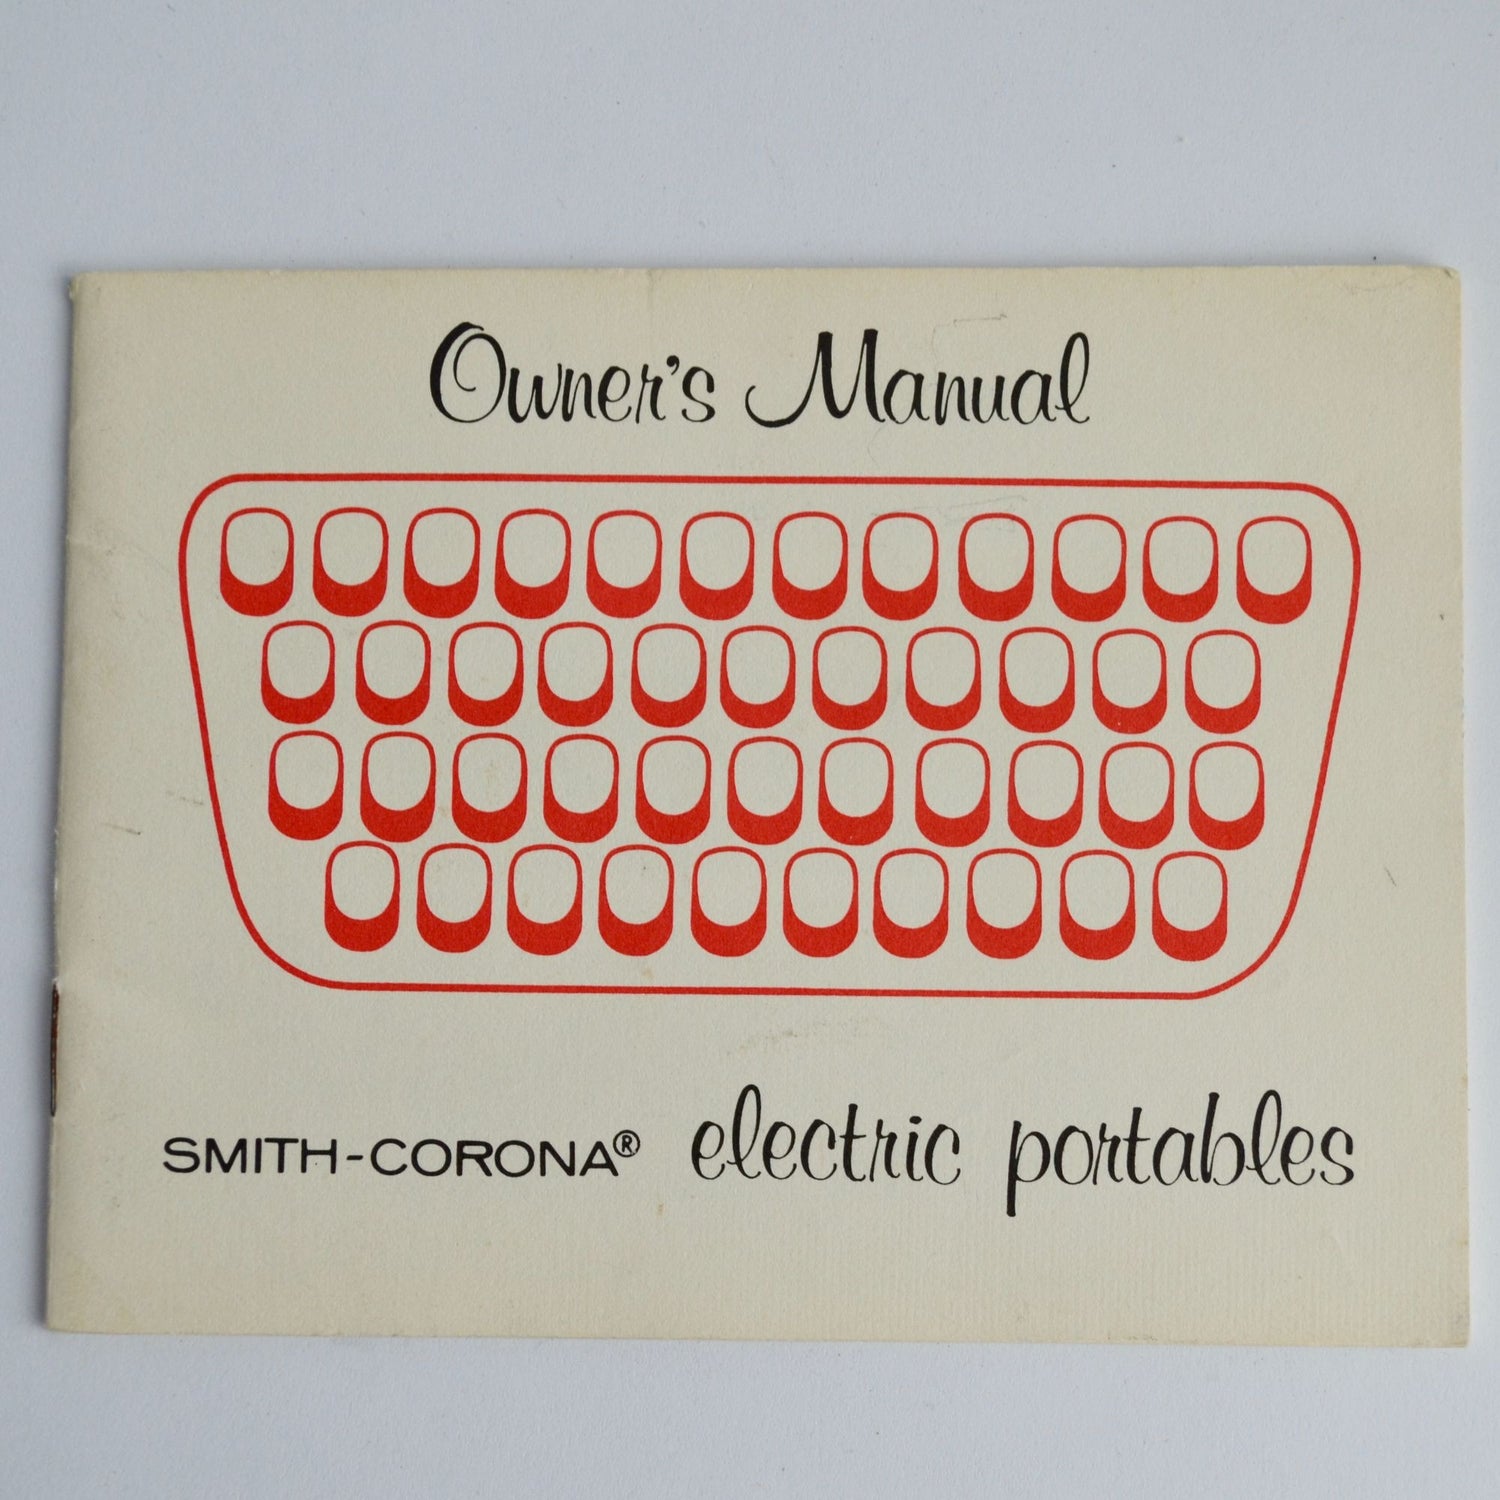 Owner's Manual
SMITH-CORONA® electric portables